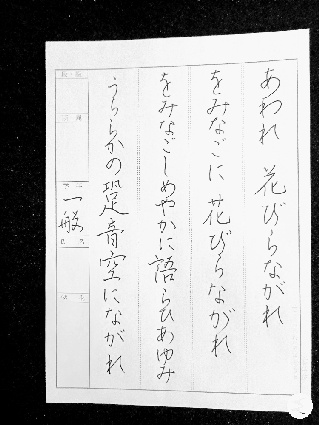 あわれ 花びらながれ
をみなごに 花びらながれ
をみなごしめやかに語らひあゆみ
うららかの跫音空にながれ
一般